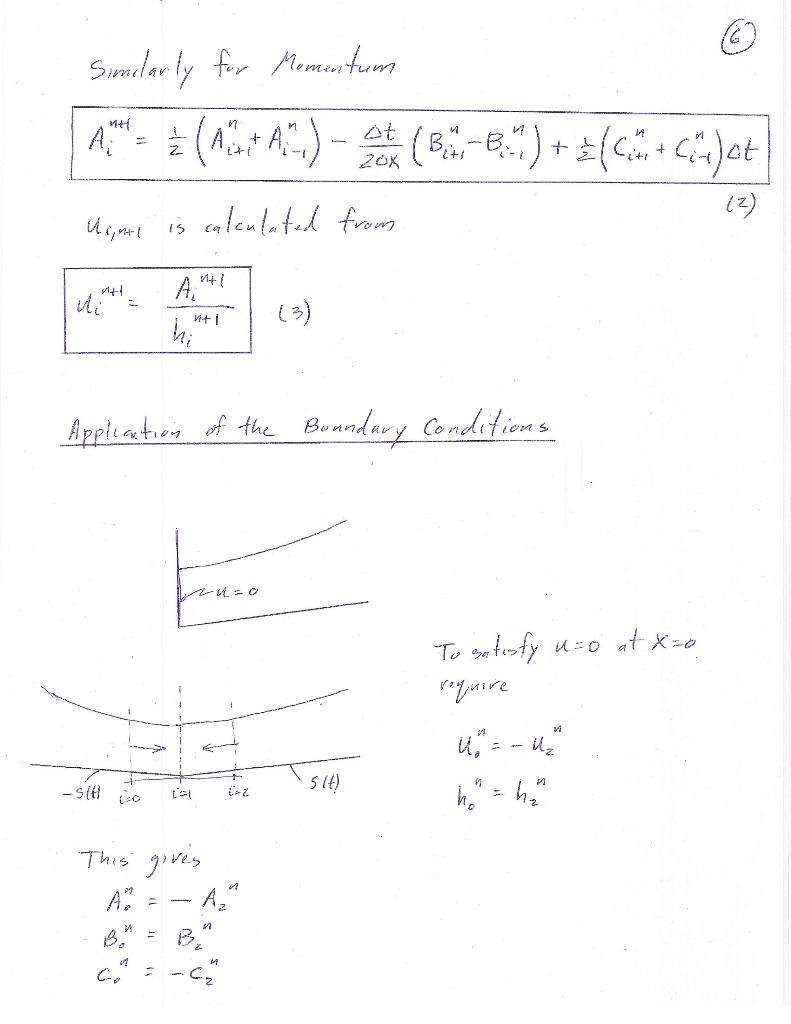 6
Similarly for Momentum
A_i^{n+1} = 1/2 (A_{i+1}^n + A_{i-1}^n) - Δt/2Δx (B_{i+1}^n - B_{i-1}^n) + 1/2 (C_{i+1}^n + C_{i-1}^n) Δt
(2)
u_{i,n+1} is calculated from
u_i^{n+1} = A_i^{n+1} / h_i^{n+1} (3)
Application of the Boundary Conditions
u=0
To satisfy u=0 at x=0
require
u_0^n = - u_2^n
h_0^n = h_2^n
-S(t) i=0 i=1 i=2 S(t)
This gives
A_0^n = - A_2^n
B_0^n = B_2^n
C_0^n = - C_2^n